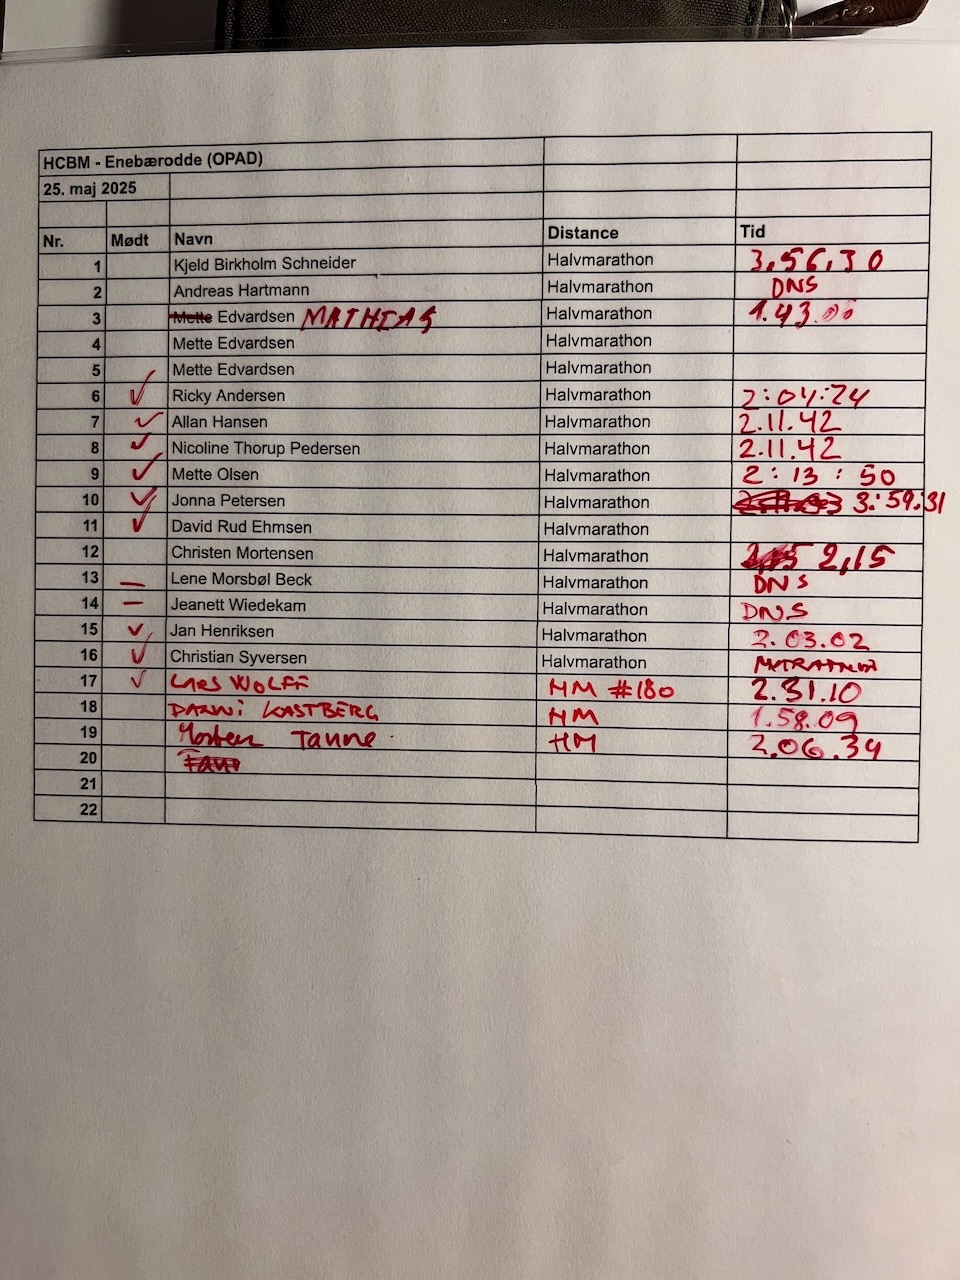 HCBM - Enebærodde (OPAD)
25. maj 2025
Nr. Mødt Navn Distance Tid
1 Kjeld Birkholm Schneider Halvmarathon 3,56,30
2 Andreas Hartmann Halvmarathon DNS
3 Mette Edvardsen MATHIAS Halvmarathon 1.43.00
4 Mette Edvardsen Halvmarathon
5 Mette Edvardsen Halvmarathon
6 ✓ Ricky Andersen Halvmarathon 2:04:24
7 ✓ Allan Hansen Halvmarathon 2.11.42
8 ✓ Nicoline Thorup Pedersen Halvmarathon 2.11.42
9 ✓ Mette Olsen Halvmarathon 2:13:50
10 ✓ Jonna Petersen Halvmarathon 3:59:31
11 ✓ David Rud Ehmsen Halvmarathon
12 Christen Mortensen Halvmarathon 2,15
13 — Lene Morsbøl Beck Halvmarathon DNS
14 — Jeanett Wiedekam Halvmarathon DNS
15 ✓ Jan Henriksen Halvmarathon 2.03.02
16 ✓ Christian Syversen Halvmarathon
17 ✓ LARS WOLFF HM #180 2.31.10
18 DANNi KASTBERG HM 1.58.09
19 Morten Tanne HM 2.06.34
20
21
22